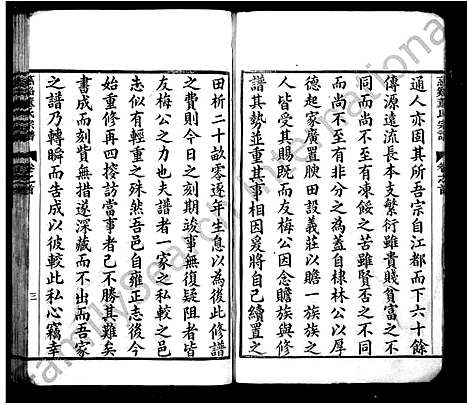 慈谿董氏宗譜
卷之首
通人亦囿其所吾宗自江都而下六十餘
傳源遠流長本支繁衍雖貴賤貧富之不
同而不至有凍餒之苦雖賢否之不同
然而亦不至有非分之為蓋自棣林公以厚
德起家廣置腴田設義莊以贍一族之
人皆受其賜既而友梅公因念贍族與修
譜其勢並重其事相因將自己續置之
田析二十畝零逐年生息以為後此修譜
之費則今日之刻期竣事無復疑阻者皆
友梅公之力也夫譜者一家之私較之邑
志似有輕重之殊然吾邑自雍正志後今
始重修再四搜訪當事者已不勝其難矣
書成而刻貲無措遂深藏而不出而吾家
之譜乃轉瞬而告成以彼較此私心竊幸
三
FamilySearch International